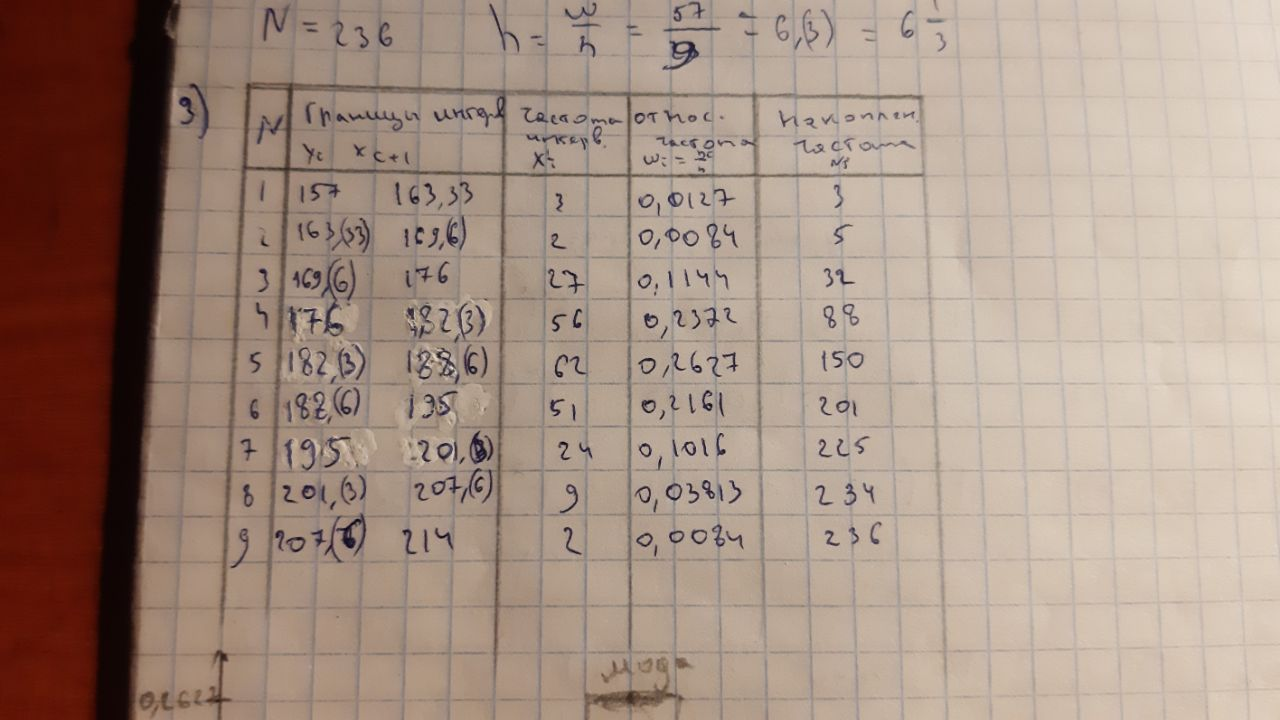 N = 236 h = w/n = 57/9 = 6,(3) = 6 1/3
3)
N Границы интерв частота относ. Накоплен.
интерв. частота частота
x_i x_{i+1}
1 157 163,33 3 0,0127 3
2 163,(33) 169,(6) 2 0,0084 5
3 169,(6) 176 27 0,1144 32
4 176 182,(3) 56 0,2372 88
5 182,(3) 188,(6) 62 0,2627 150
6 188,(6) 195 51 0,2161 201
7 195 201,(3) 24 0,1016 225
8 201,(3) 207,(6) 9 0,03813 234
9 207,(6) 214 2 0,0084 236
мода
0,2627